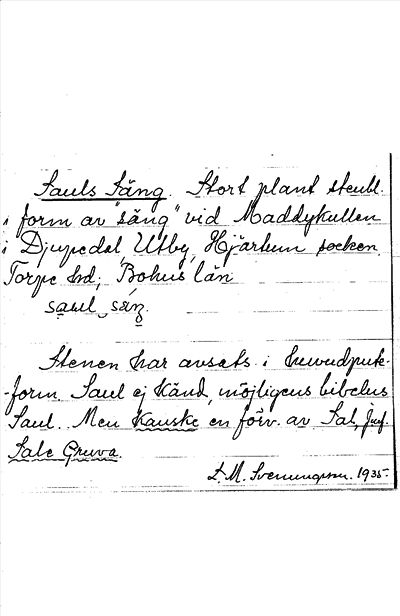 Sauls Säng. Stort plant stenbl.
i form av "säng" vid Maddykullen
i Djupedal, Utby, Hjärtum socken
Torpe hd; Bohus län
saul säŋ
Stenen har avsats i huvudput-
-form. Saul ej känd, möjligens bibelns
Saul. Men kanske en förv. av Sal, jmf.
Sale Gruva.
L. M. Svenungsson. 1935.